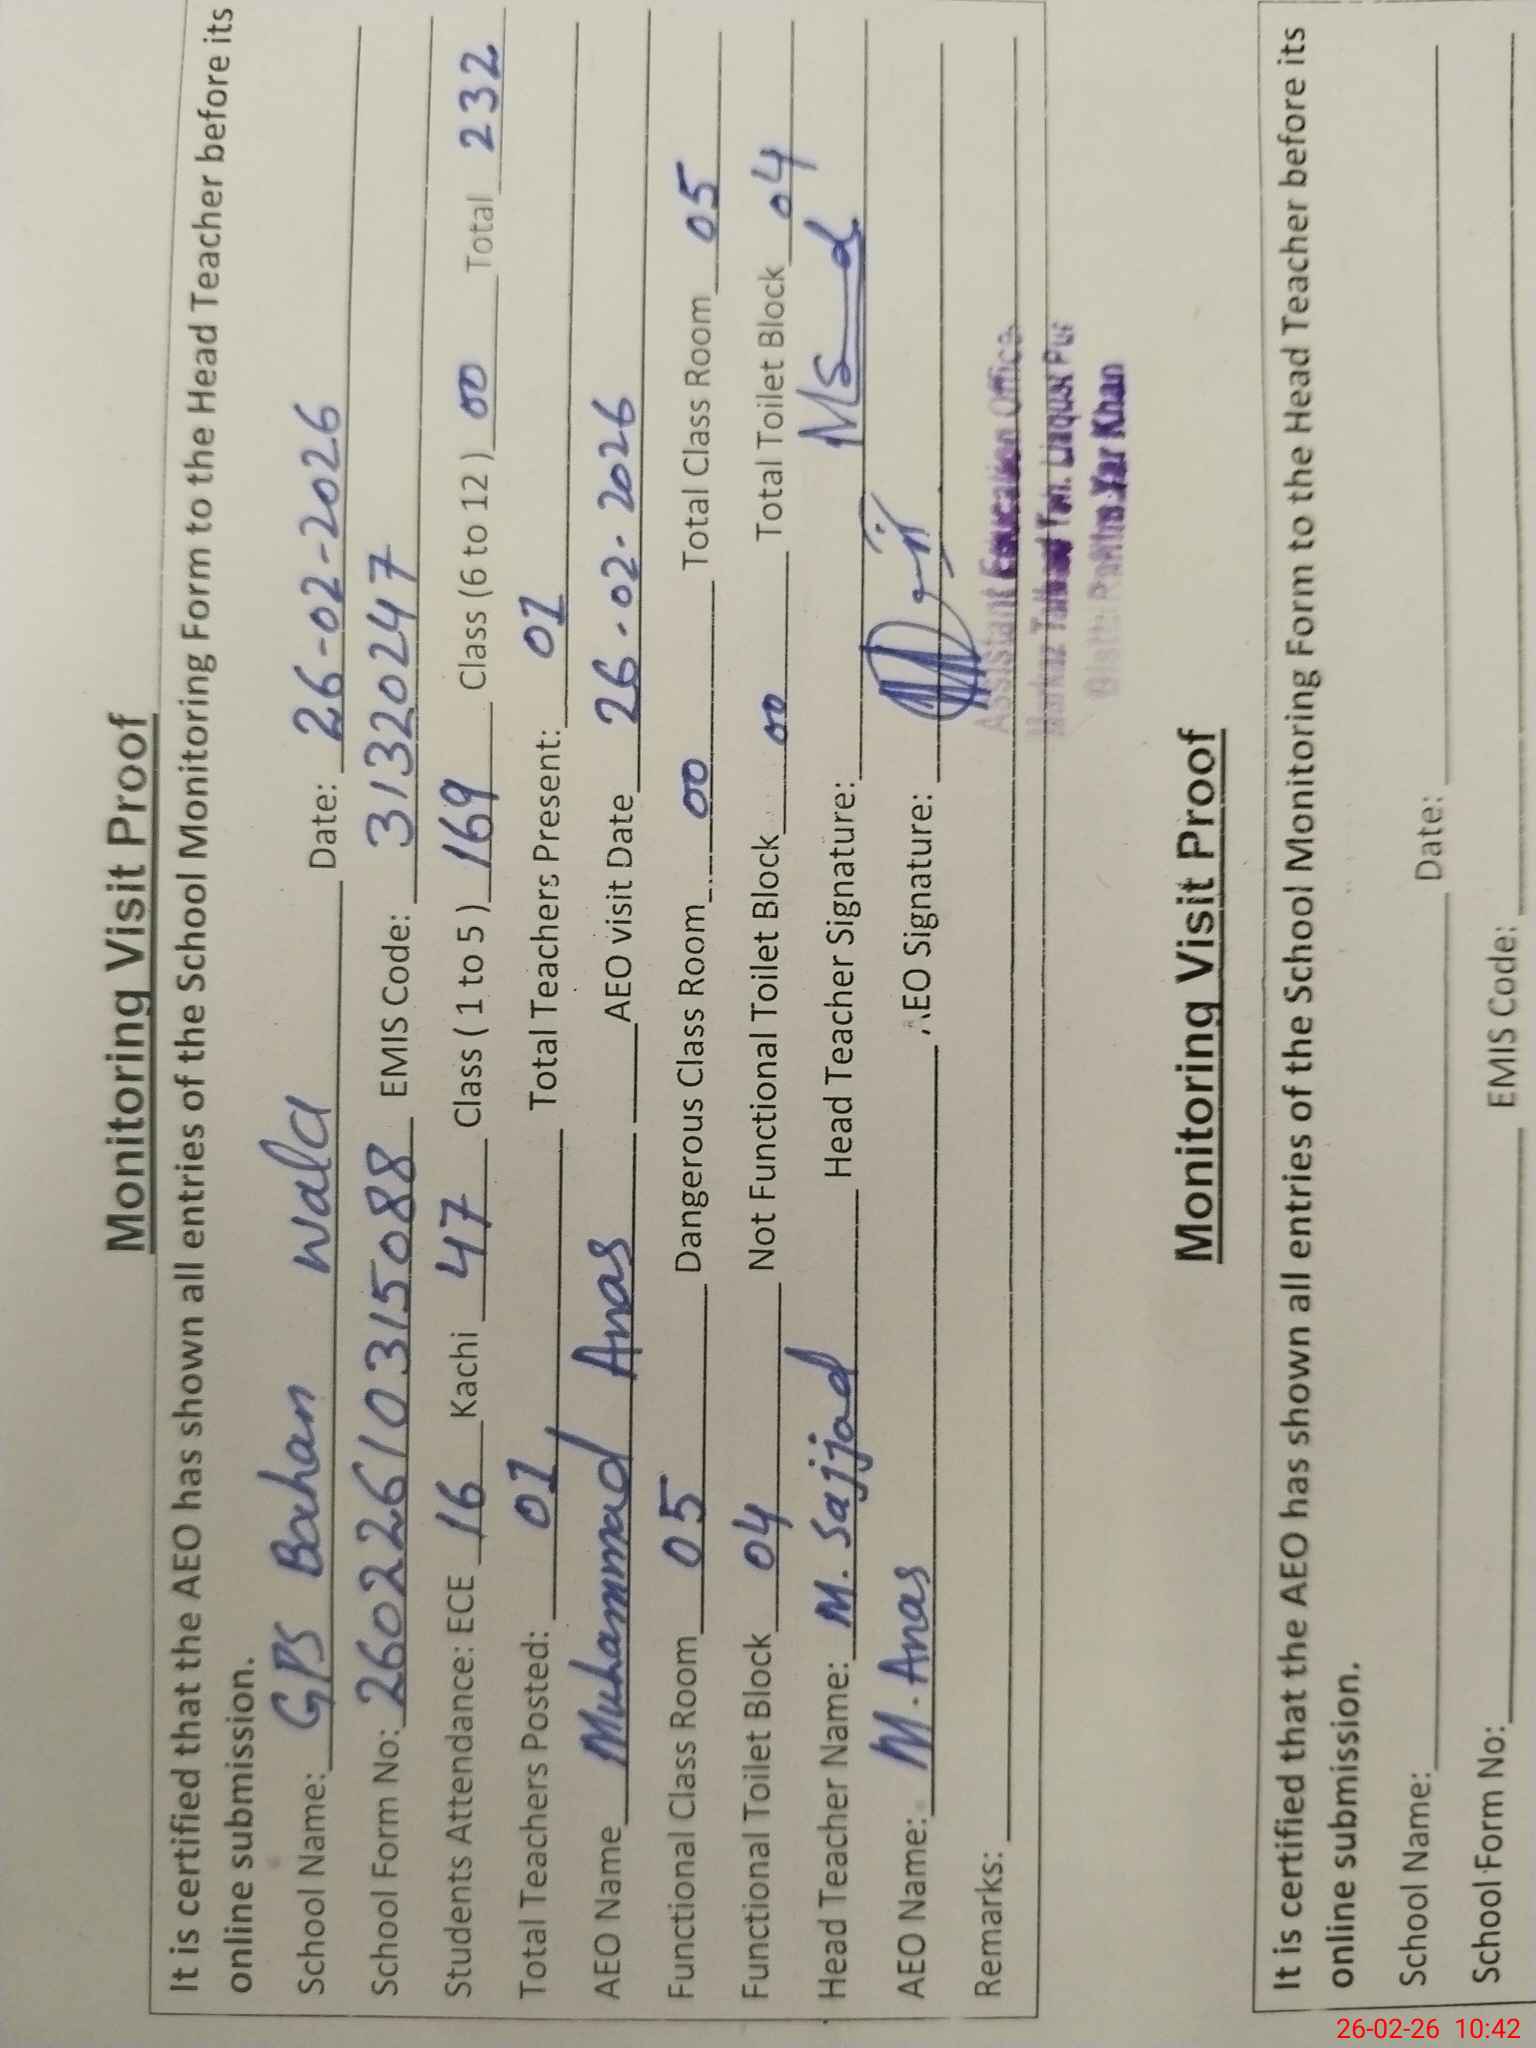 Monitoring Visit Proof
It is certified that the AEO has shown all entries of the School Monitoring Form to the Head Teacher before its
online submission.
School Name: GPS Bahan Wala Date: 26-02-2026
School Form No: 26022610315088 EMIS Code: 31320247
Students Attendance: ECE 16 Kachi 47 Class ( 1 to 5 ) 169 Class (6 to 12 ) 00 Total 232
Total Teachers Posted: 01 Total Teachers Present: 01
AEO Name Muhammad Anas AEO visit Date 26-02-2026
Functional Class Room 05 Dangerous Class Room 00 Total Class Room 05
Functional Toilet Block 04 Not Functional Toilet Block 00 Total Toilet Block 04
Head Teacher Name: M. Sajjad Head Teacher Signature:
AEO Name: M. Anas AEO Signature:
Remarks:
Assistant Education Office
Markaz Liaqust Pur
Yar Khan
Monitoring Visit Proof
It is certified that the AEO has shown all entries of the School Monitoring Form to the Head Teacher before its
online submission.
School Name: Date:
School Form No: EMIS Code:
26-02-26 10:42